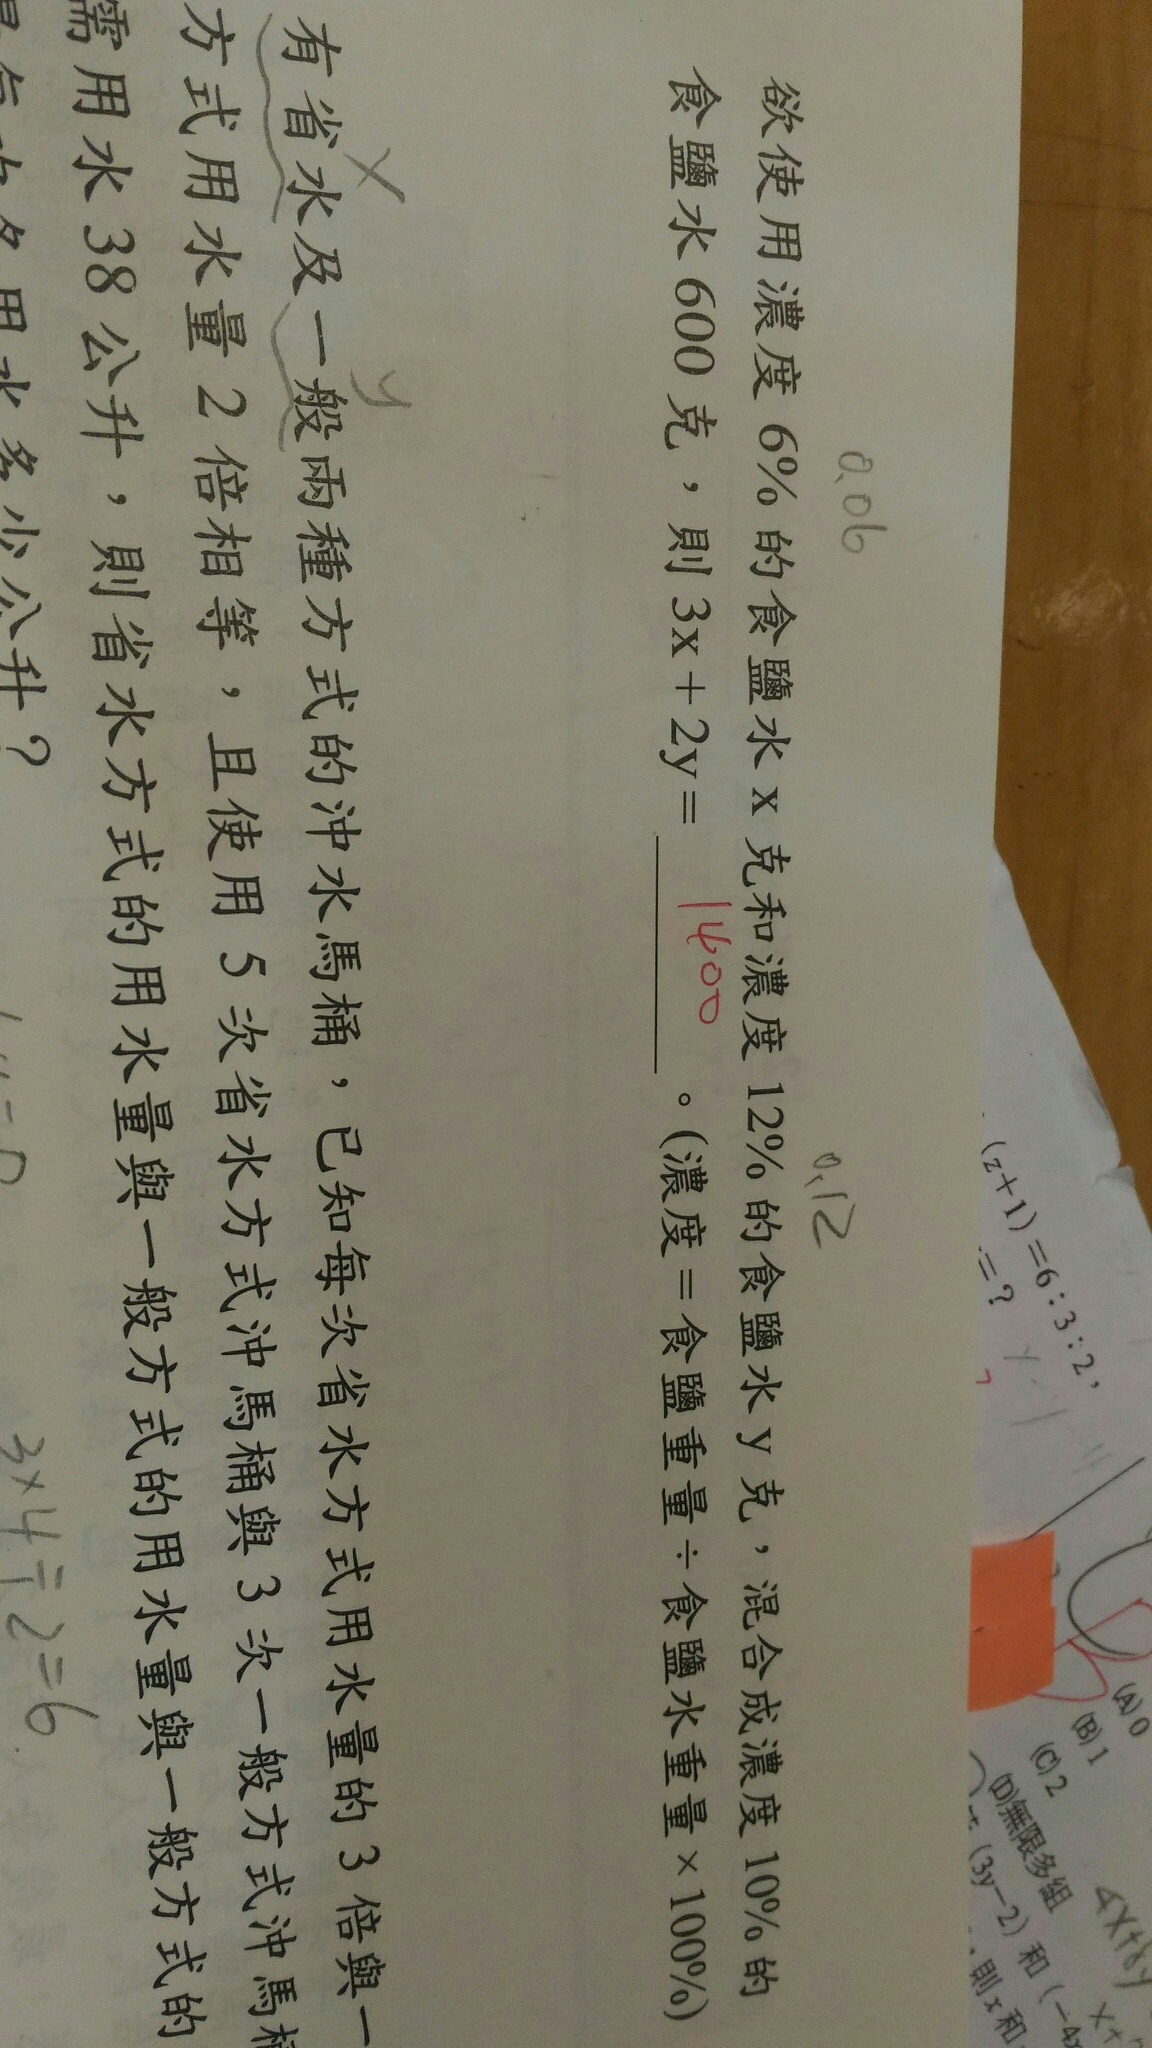 (z+1)=6:3:2,
=?
(A) 0
(B) 1
(C) 2
(D)無限多組
(3y-2) 和 (-4x
則 x 和
4x+8y
0.06
0.12
欲使用濃度 6% 的食鹽水 x 克和濃度 12% 的食鹽水 y 克，混合成濃度 10% 的
食鹽水 600 克，則 3x+2y= 1400 。(濃度=食鹽重量÷食鹽水重量×100%)
x
y
有省水及一般兩種方式的沖水馬桶，已知每次省水方式用水量的 3 倍與一
方式用水量 2 倍相等，且使用 5 次省水方式沖馬桶與 3 次一般方式沖馬桶
需用水 38 公升，則省水方式的用水量與一般方式的用水量與一般方式的
用水多少公升？
3×4÷2=6